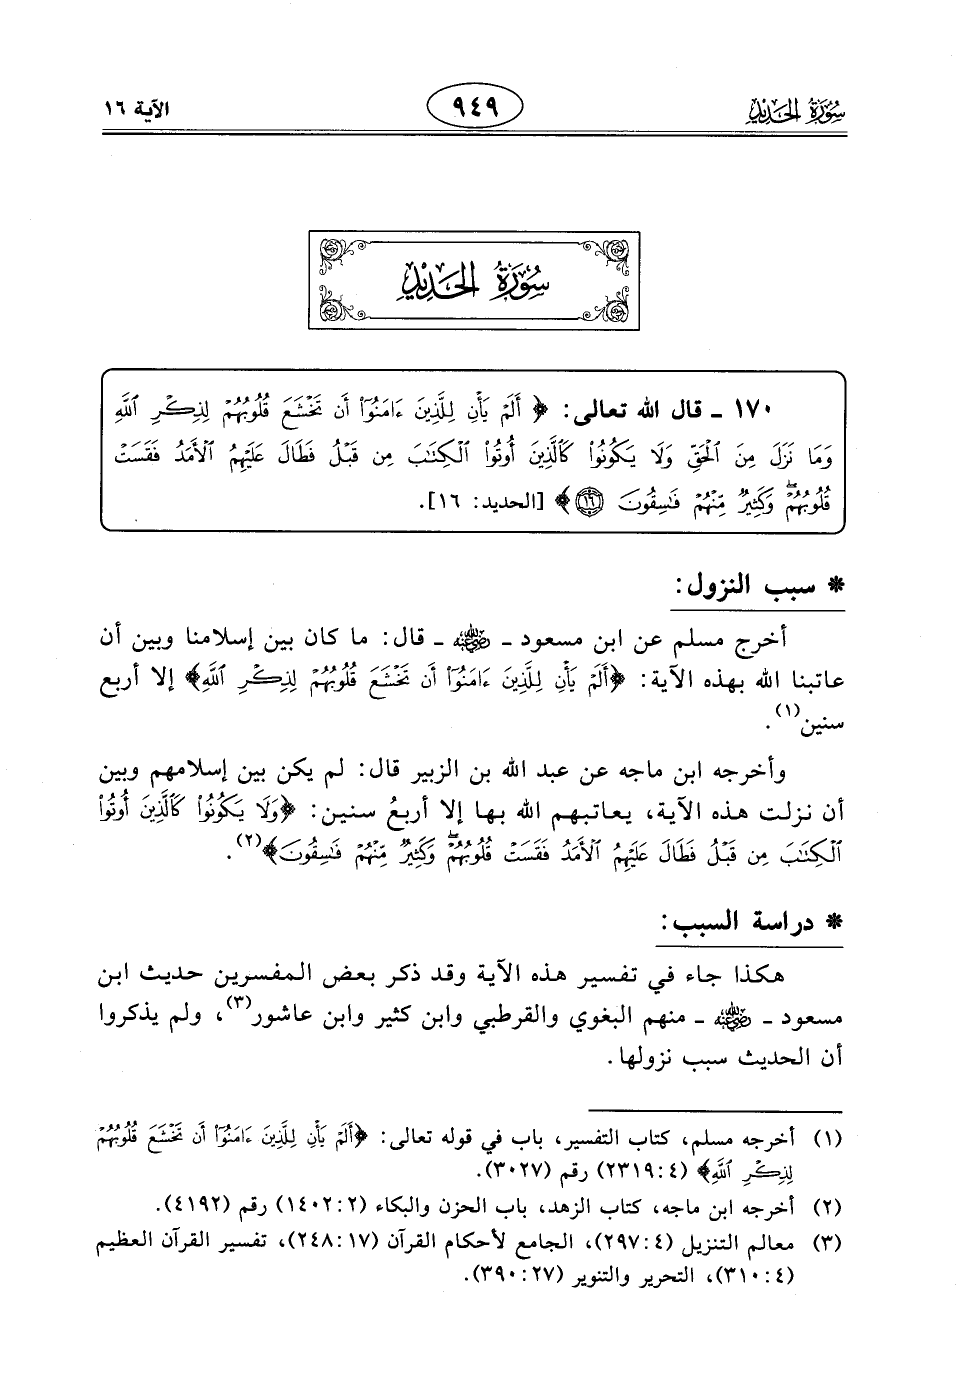 سُورَةُ الحَدِيدِ
٩٤٩
الآية ١٦
سُورَةُ الحَدِيدِ
١٧٠ ـ قال الله تعالى: ﴿ أَلَمْ يَأْنِ لِلَّذِينَ ءَامَنُوٓا۟ أَن تَخْشَعَ قُلُوبُهُمْ لِذِكْرِ ٱللَّهِ
وَمَا نَزَلَ مِنَ ٱلْحَقِّ وَلَا يَكُونُوا۟ كَٱلَّذِينَ أُوتُوا۟ ٱلْكِتَـٰبَ مِن قَبْلُ فَطَالَ عَلَيْهِمُ ٱلْأَمَدُ فَقَسَتْ
قُلُوبُهُمْ ۖ وَكَثِيرٌ مِّنْهُمْ فَـٰسِقُونَ ١٦ ﴾ [الحديد: ١٦].
* سبب النزول:
أخرج مسلم عن ابن مسعود ـ رضي الله عنه ـ قال: ما كان بين إسلامنا وبين أن
عاتبنا الله بهذه الآية: ﴿أَلَمْ يَأْنِ لِلَّذِينَ ءَامَنُوٓا۟ أَن تَخْشَعَ قُلُوبُهُمْ لِذِكْرِ ٱللَّهِ﴾ إلا أربع
سنين(١).
وأخرجه ابن ماجه عن عبد الله بن الزبير قال: لم يكن بين إسلامهم وبين
أن نزلت هذه الآية، يعاتبهم الله بها إلا أربعُ سنين: ﴿وَلَا يَكُونُوا۟ كَٱلَّذِينَ أُوتُوا۟
ٱلْكِتَـٰبَ مِن قَبْلُ فَطَالَ عَلَيْهِمُ ٱلْأَمَدُ فَقَسَتْ قُلُوبُهُمْ ۖ وَكَثِيرٌ مِّنْهُمْ فَـٰسِقُونَ﴾(٢).
* دراسة السبب:
هكذا جاء في تفسير هذه الآية وقد ذكر بعض المفسرين حديث ابن
مسعود ـ رضي الله عنه ـ منهم البغوي والقرطبي وابن كثير وابن عاشور(٣)، ولم يذكروا
أن الحديث سبب نزولها.
(١) أخرجه مسلم، كتاب التفسير، باب في قوله تعالى: ﴿أَلَمْ يَأْنِ لِلَّذِينَ ءَامَنُوٓا۟ أَن تَخْشَعَ قُلُوبُهُمْ
لِذِكْرِ ٱللَّهِ﴾ (٤: ٢٣١٩) رقم (٣٠٢٧).
(٢) أخرجه ابن ماجه، كتاب الزهد، باب الحزن والبكاء (٢: ١٤٠٢) رقم (٤١٩٢).
(٣) معالم التنزيل (٤: ٢٩٧)، الجامع لأحكام القرآن (١٧: ٢٤٨)، تفسير القرآن العظيم
(٤: ٣١٠)، التحرير والتنوير (٢٧: ٣٩٠).